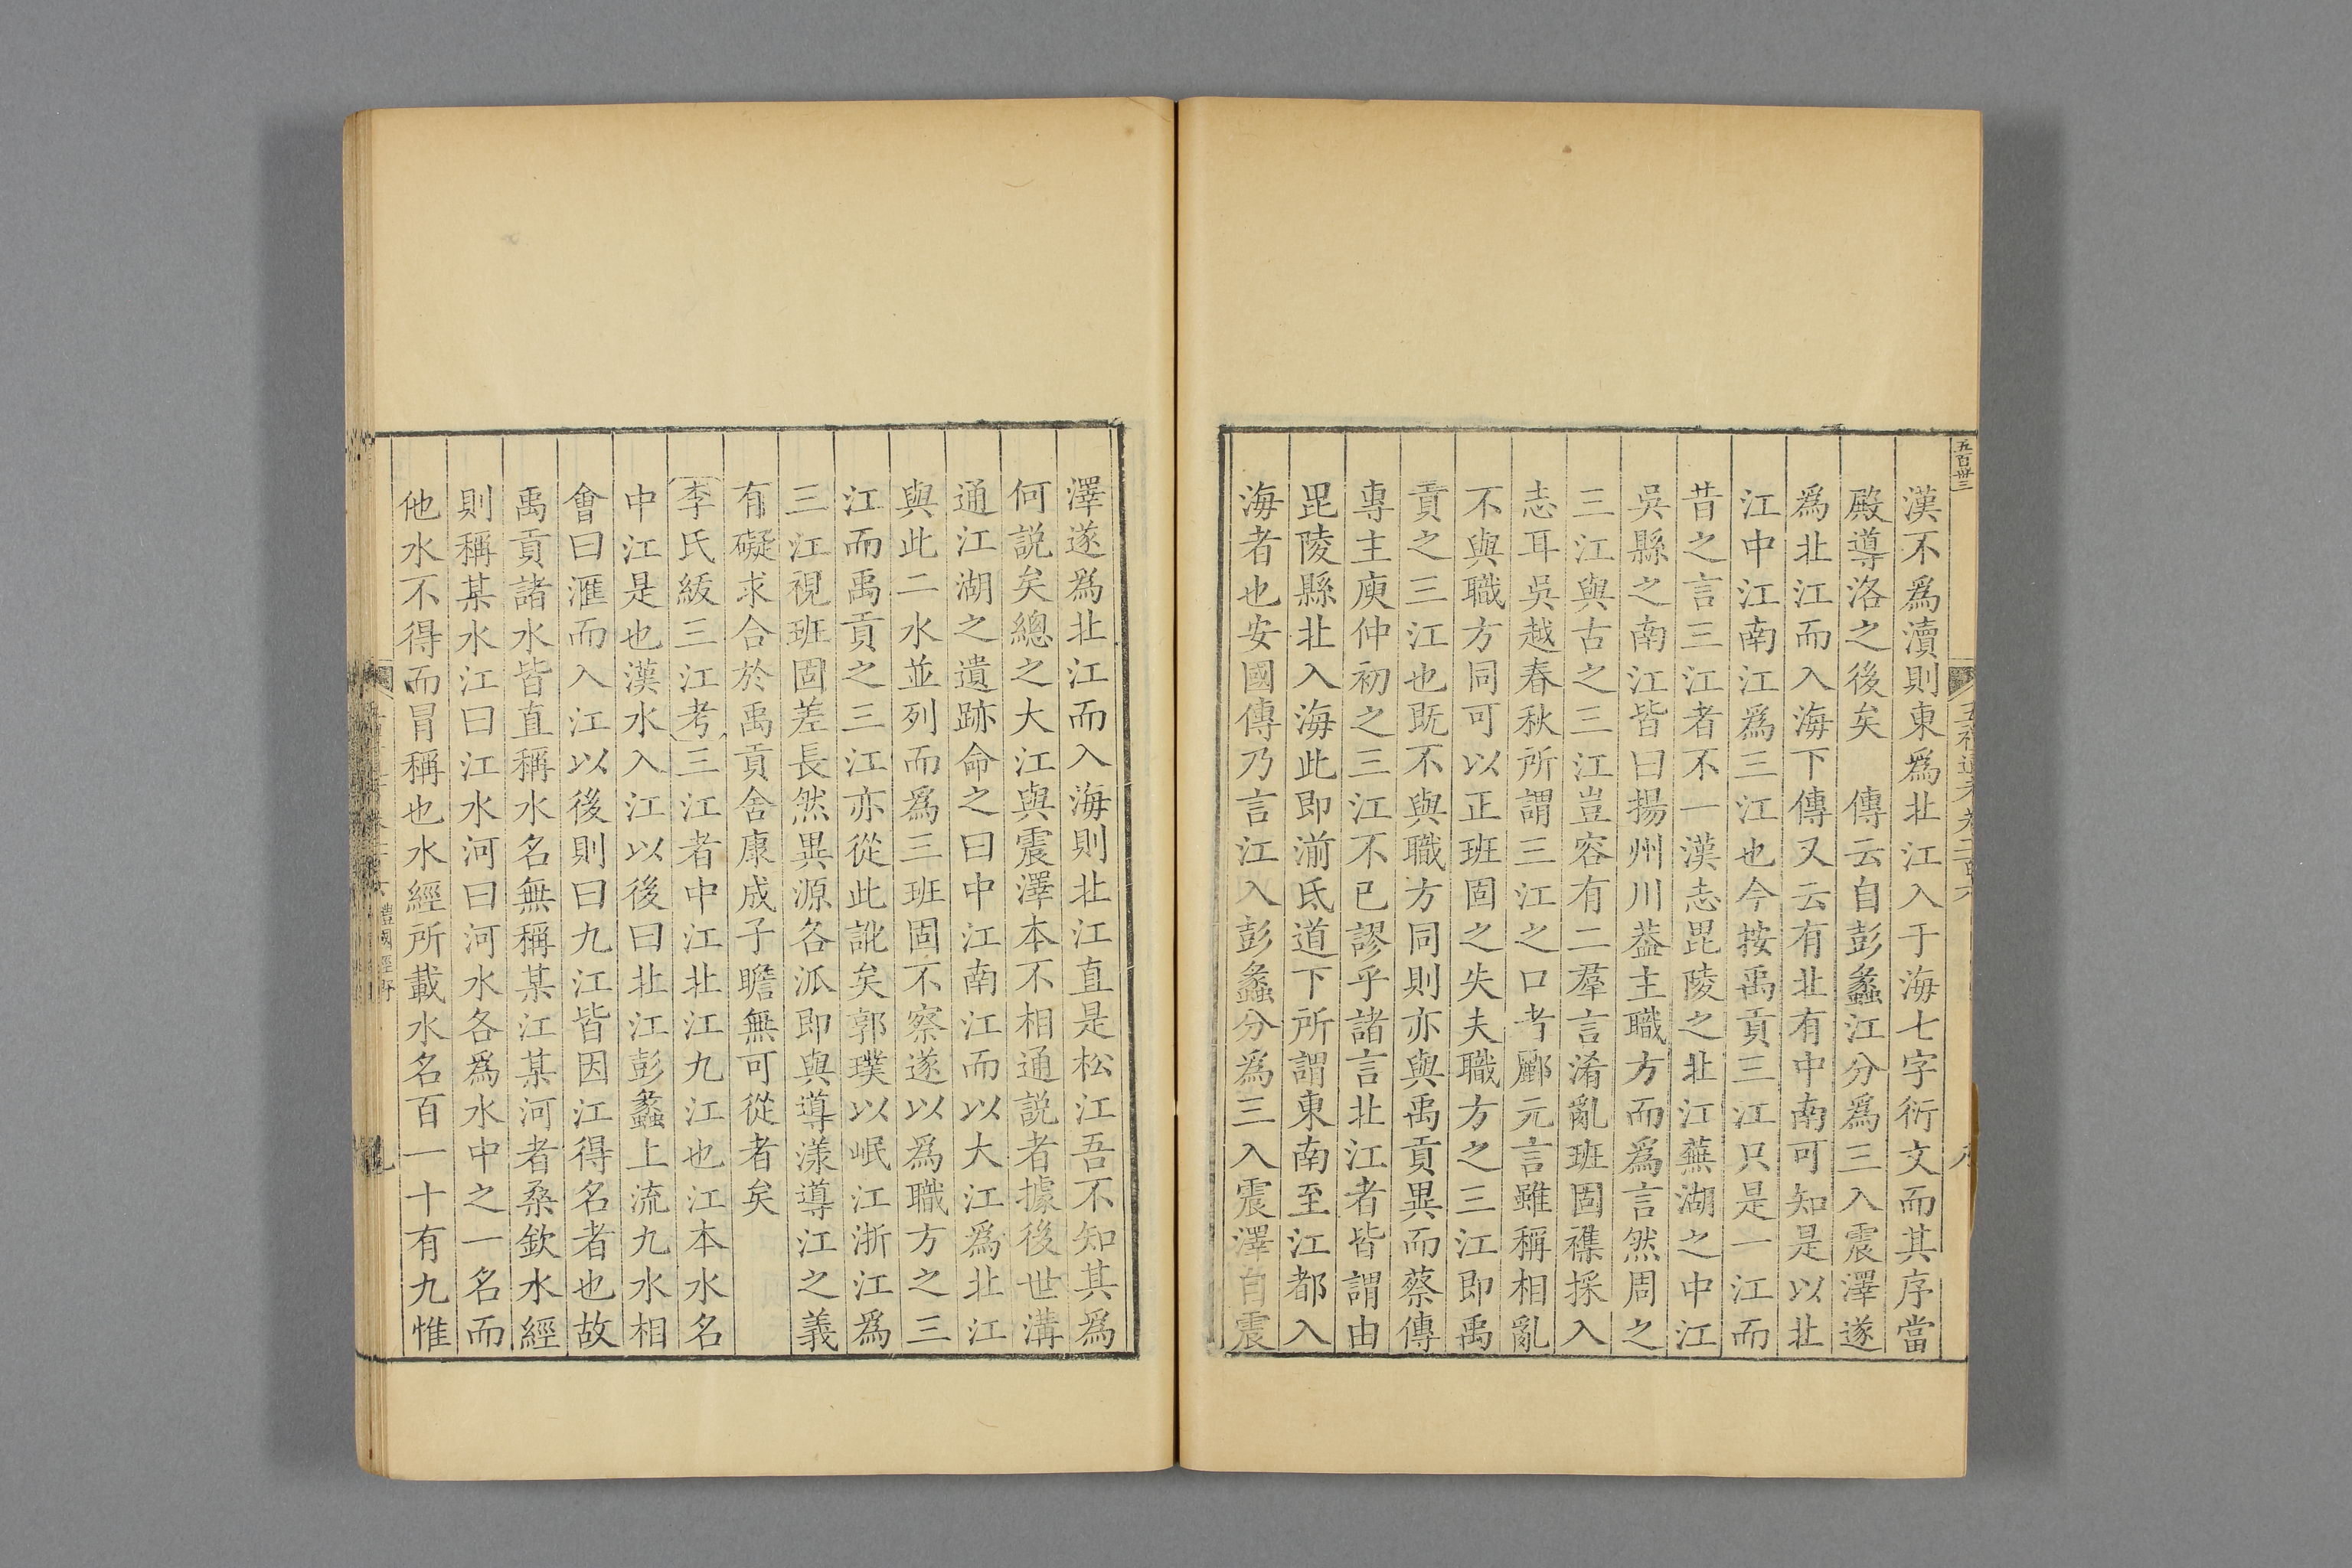 五百卅三
漢不爲瀆則東爲北江入于海七字衍文而其序當
殿導洛之後矣　傳云自彭蠡江分爲三入震澤遂
爲北江而入海下傳又云有北有中南可知是以北
江中江南江爲三江也今按禹貢三江只是一江而
昔之言三江者不一漢志毘陵之北江蕪湖之中江
吳縣之南江皆曰揚州川葢主職方而爲言然周之
三江與古之三江豈容有二羣言淆亂班固襍採入
志耳吳越春秋所謂三江之口考酈元言雖稱相亂
不與職方同可以正班固之失夫職方之三江即禹
貢之三江也既不與職方同則亦與禹貢異而蔡傳
專主庾仲初之三江不已謬乎諸言北江者皆謂由
毘陵縣北入海此即湔氐道下所謂東南至江都入
海者也安國傳乃言江入彭蠡分爲三入震澤自震
澤遂爲北江而入海則北江直是松江吾不知其爲
何説矣總之大江與震澤本不相通説者據後世溝
通江湖之遺跡命之曰中江南江而以大江爲北江
與此二水並列而爲三班固不察遂以爲職方之三
江而禹貢之三江亦從此訛矣郭璞以岷江浙江爲
三江視班固差長然異源各派即與導漾導江之義
有礙求合於禹貢舍康成子瞻無可從者矣
李氏紱三江考三江者中江北江九江也江本水名
中江是也漢水入江以後曰北江彭蠡上流九水相
會曰滙而入江以後則曰九江皆因江得名者也故
禹貢諸水皆直稱水名無稱某江某河者桑欽水經
則稱某水江曰江水河曰河水各爲水中之一名而
他水不得而冒稱也水經所載水名百一十有九惟